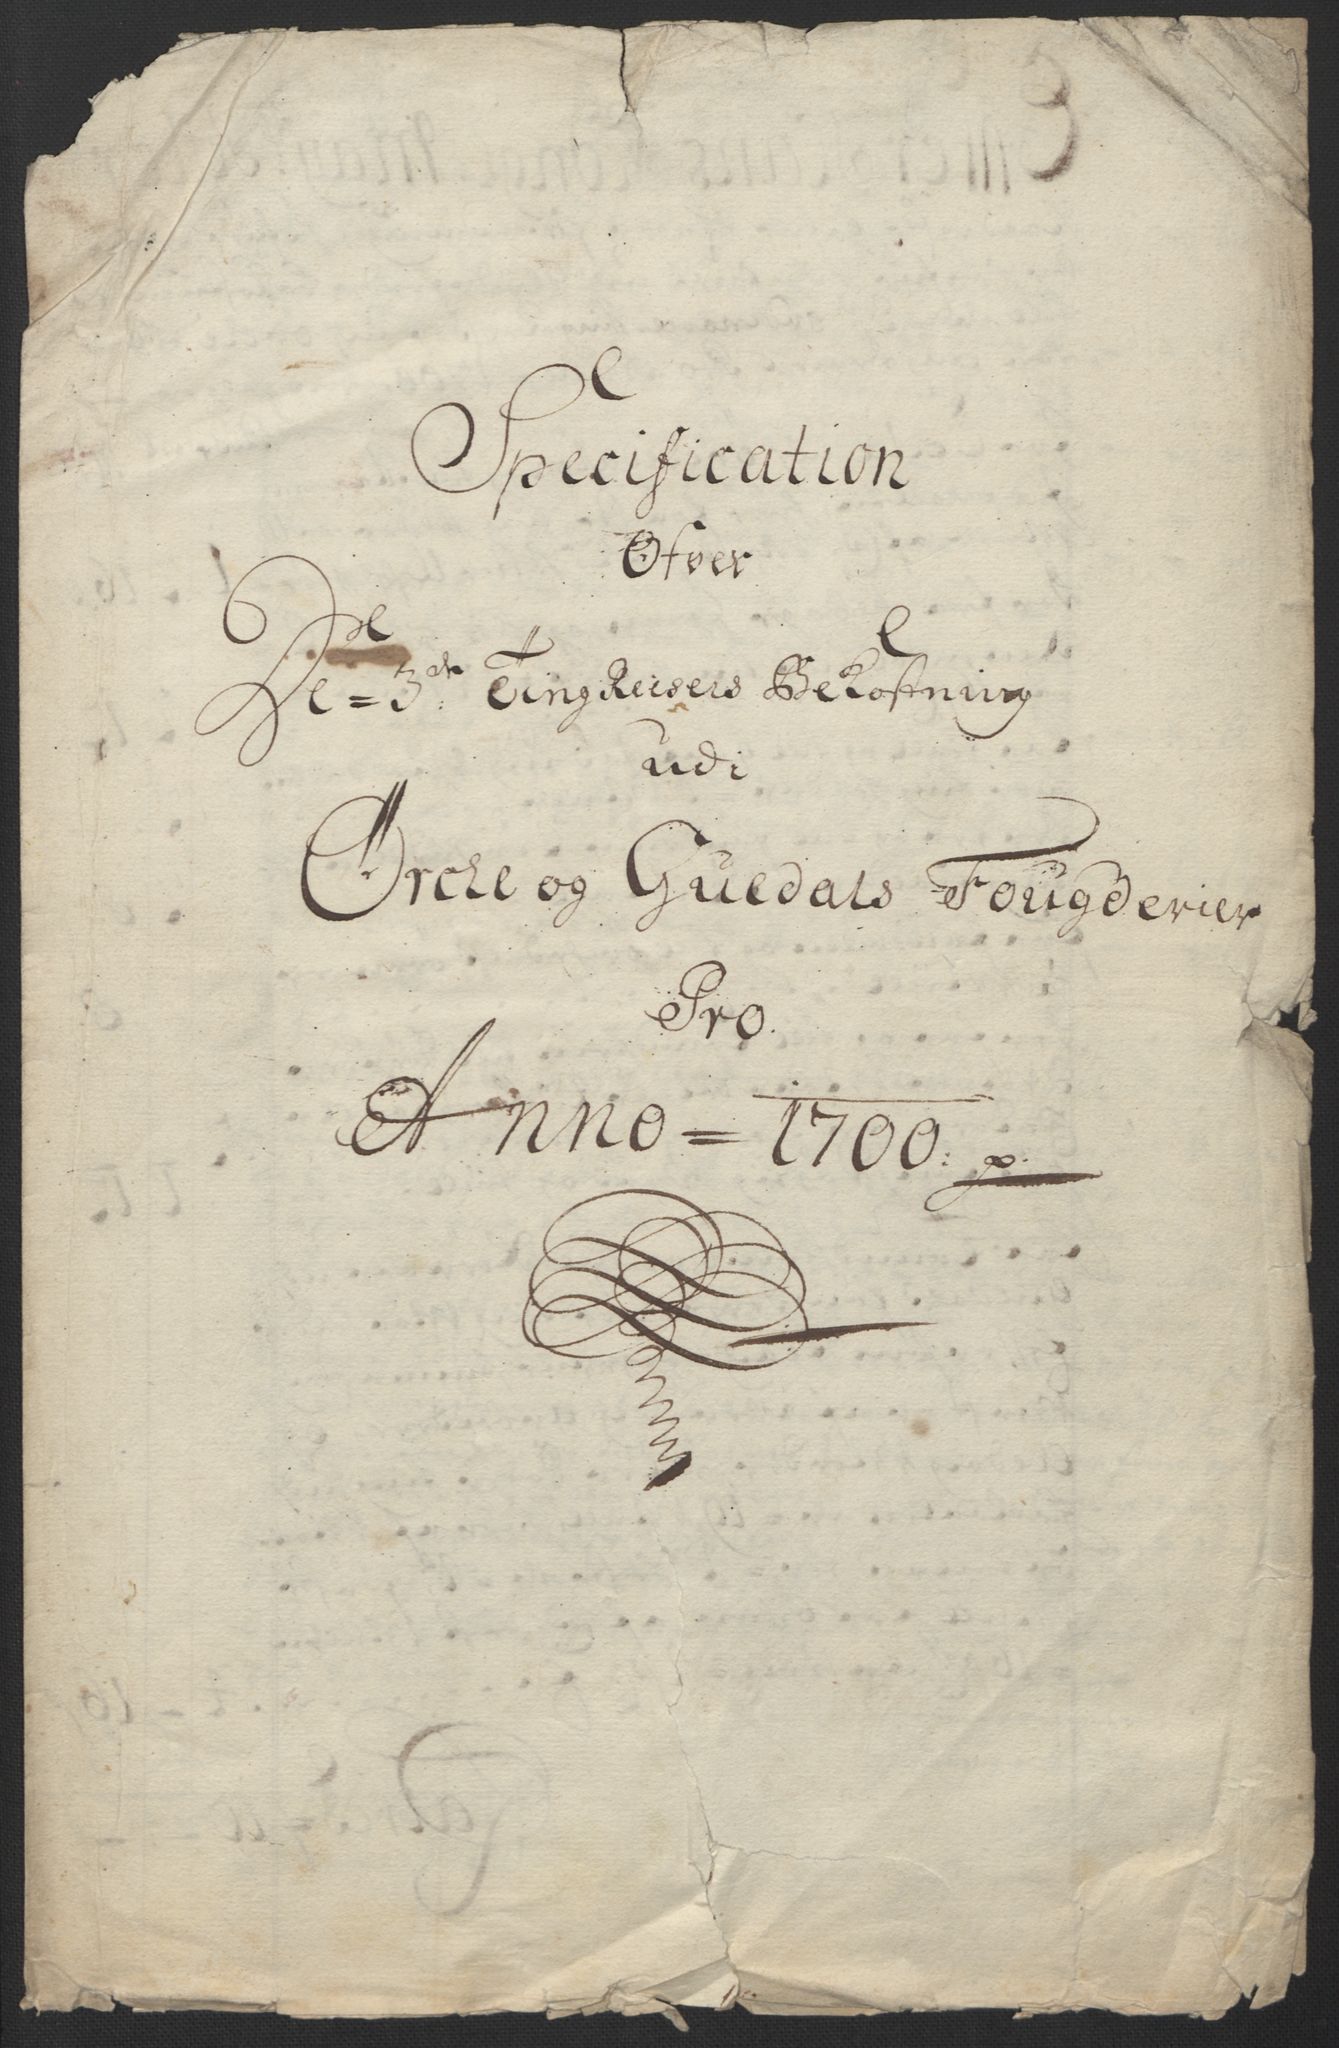 Specification
Ofver
De = 3de TingReisers Bekostning
udi
Ørche og Guedals Fougderier
Pro.
Anno = 1700: p.